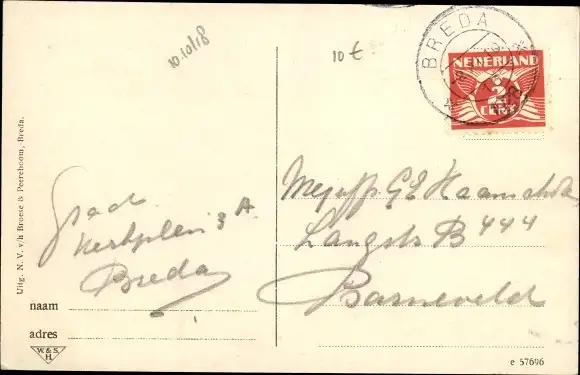 10.10/18
10 €
BREDA
NEDERLAND
2
CENT
Uitg. N. V. v/h Broese & Peereboom, Breda.
Kerkplein 3 A
Breda
Mejuffr GE
Langstr B 444
Barneveld
naam
adres
W. & S.
H
e 57696